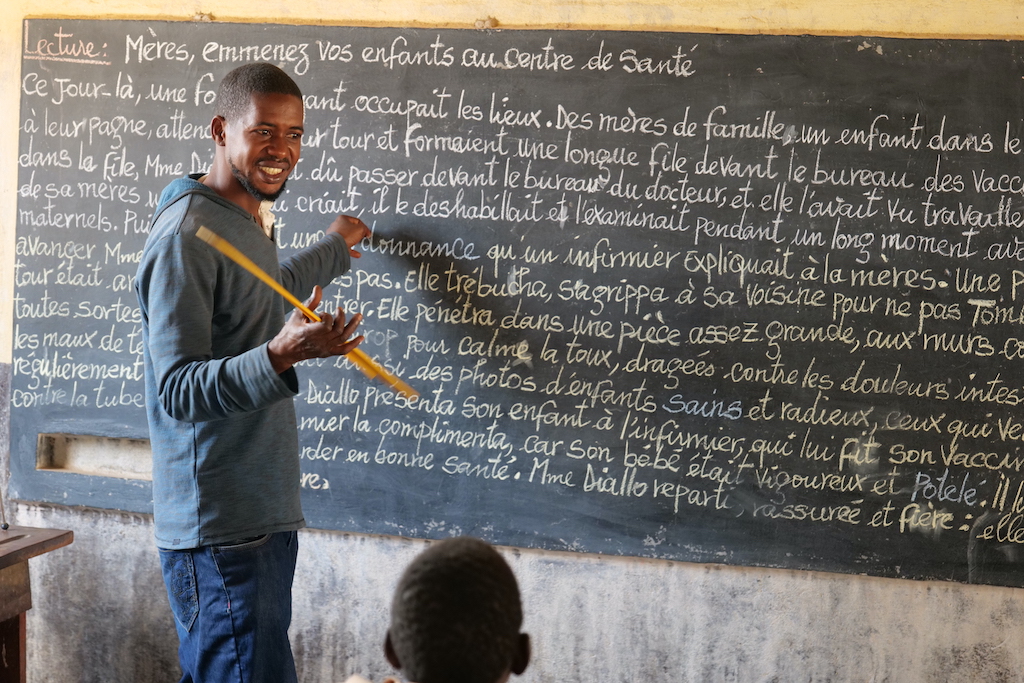 Lecture: Mères, emmenez vos enfants au Centre de Santé
Ce Jour-là, une occupait les lieux. Des mères de famille, un enfant dans le
à leur pagne, tour et formaient une longue file devant le bureau des
dans la file, Mme dû passer devant le bureau du docteur, et elle l'avait vu
de sa mères criait, il le deshabillait et l'examinait pendant un long moment
maternels. une donnance qu'un infirmier expliquait à la mères. Une
avanger, Mme pas. Elle trébucha, s'agrippa à sa voisine pour ne pas
tour était Elle pénétra dans une pièce assez grande, aux murs
toutes sortes pour calme la toux, dragées contre les douleurs
les maux de des photos d'enfants sains et radieux, ceux qui
régulièrement Diallo présenta son enfant à l'infirmier, qui lui fit son
contre la la complimenta, car son bébé était vigoureux et Potelé. il
en bonne santé. Mme Diallo repartit, rassurée et fière: elle